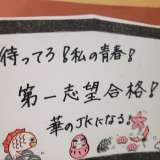 待ってろ!私の青春!
第一志望合格!
華のJKになる!